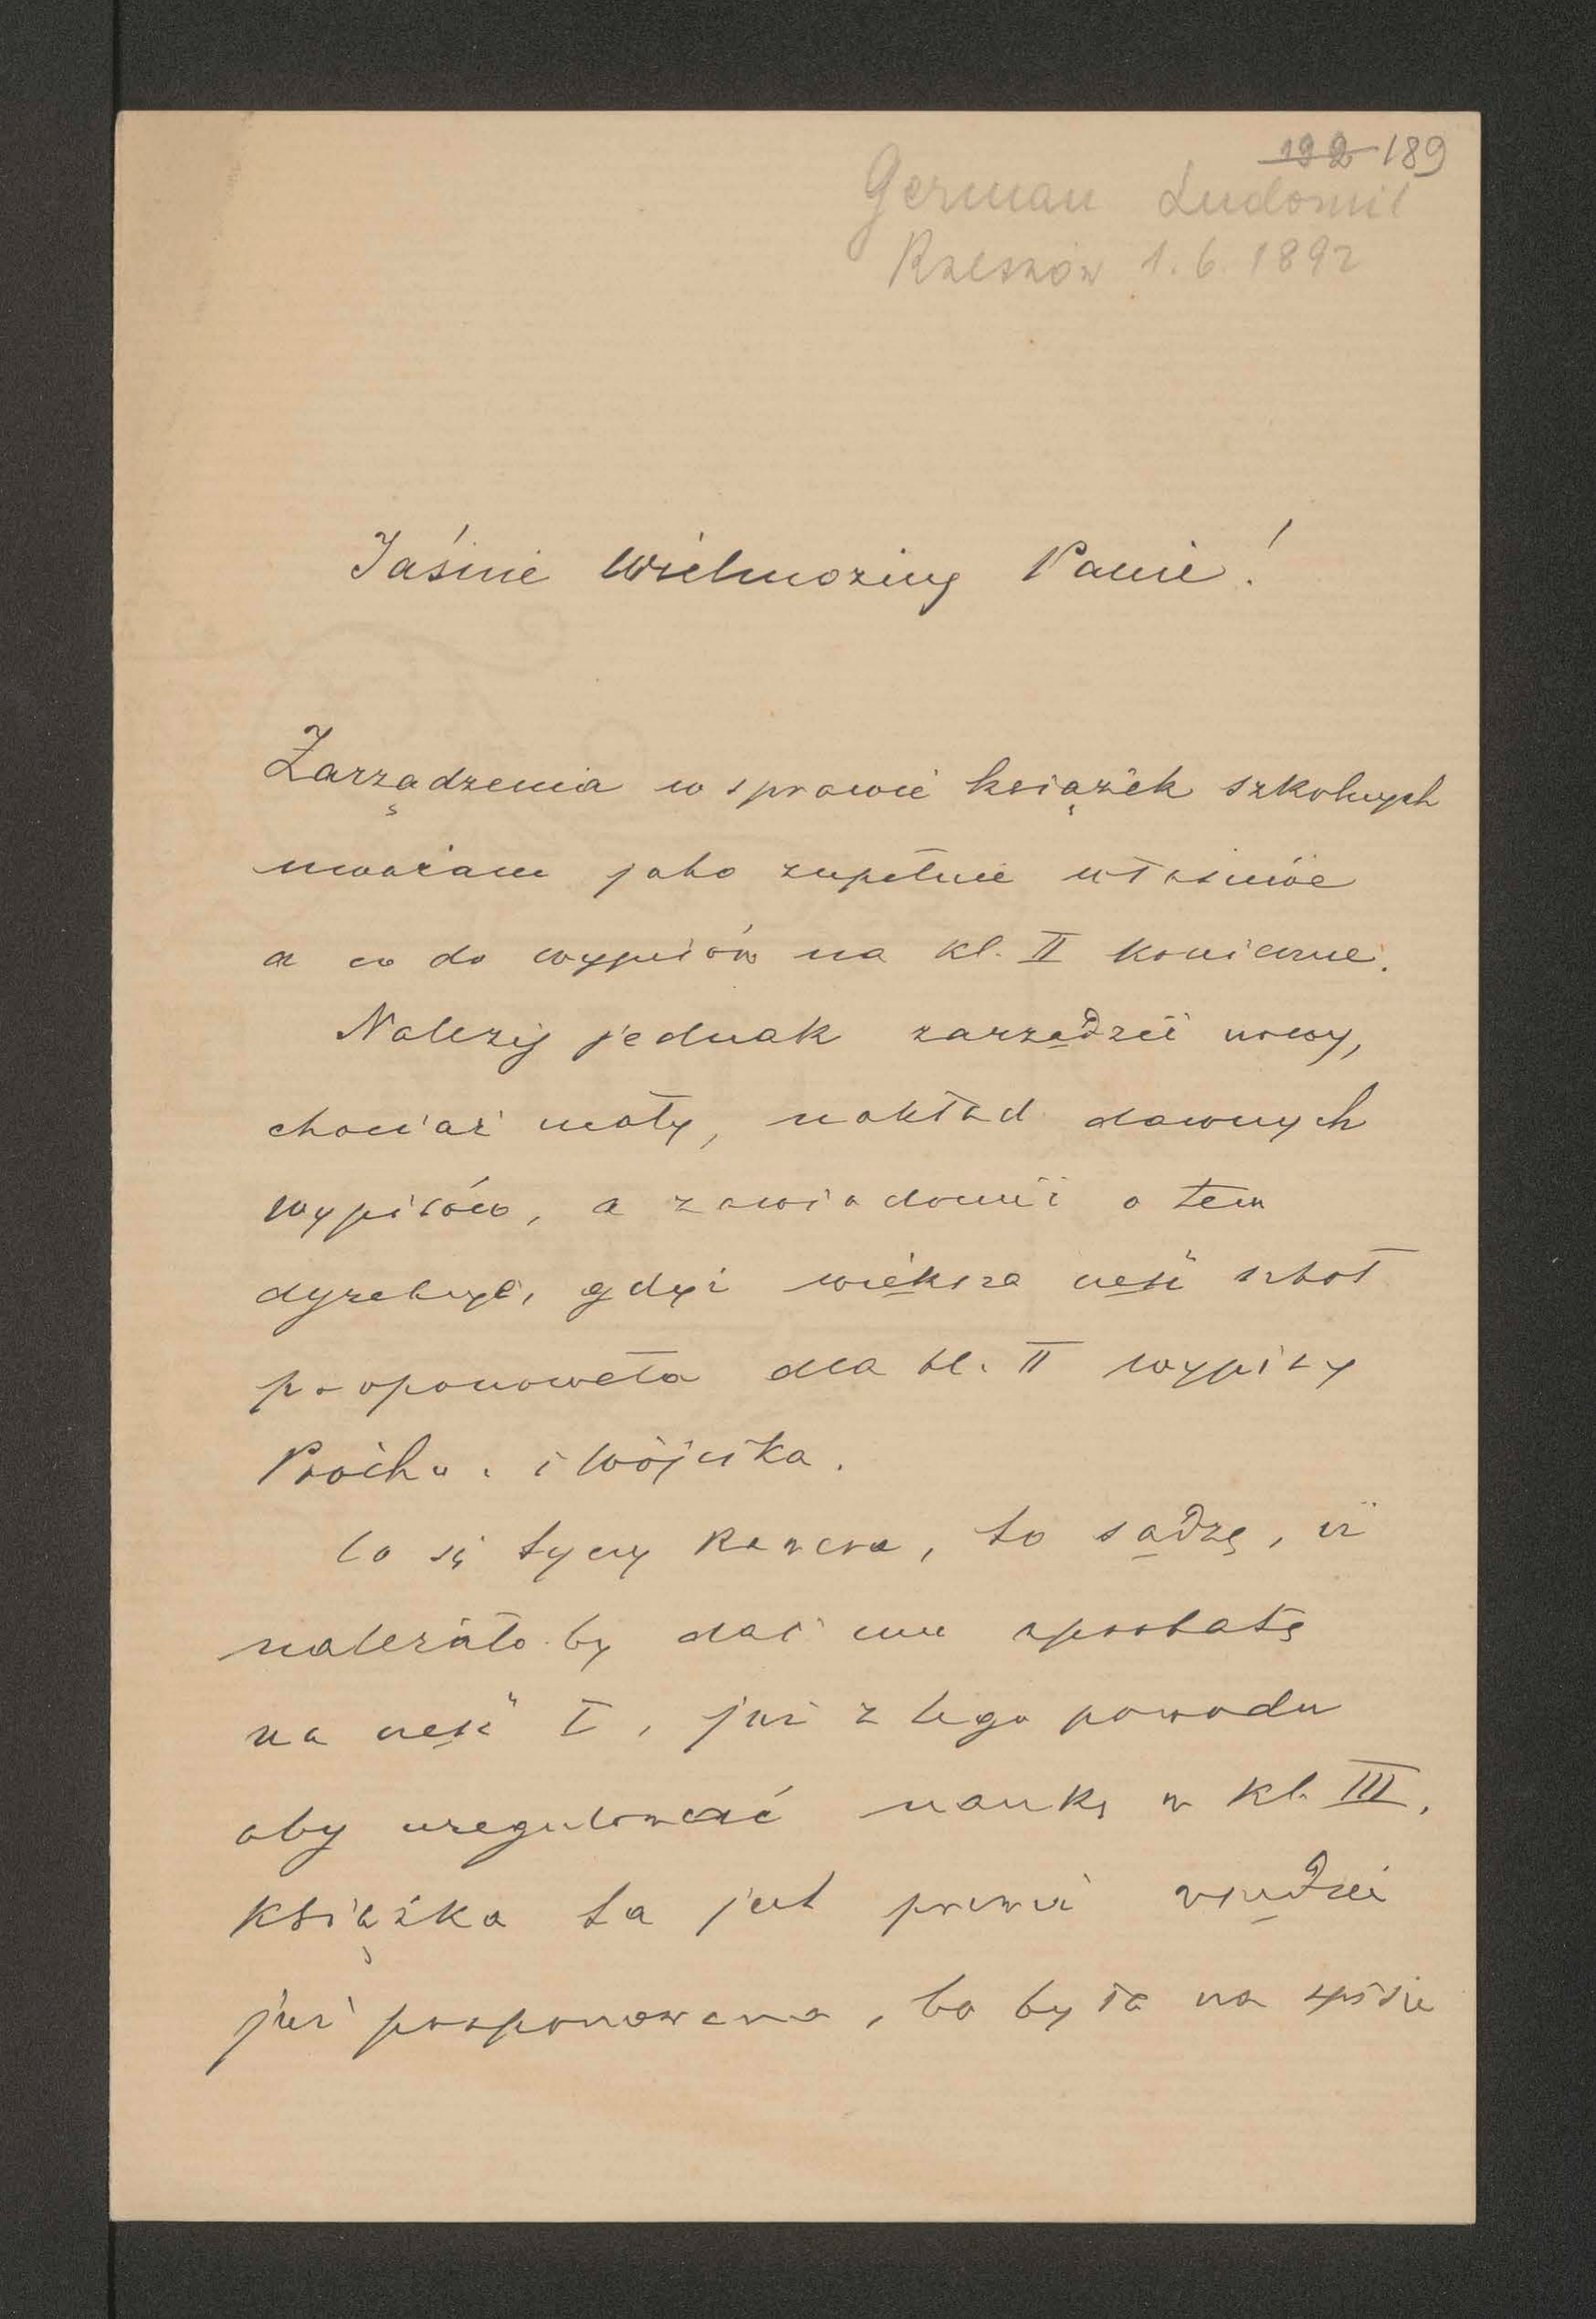 192 189
German Ludomił
Rzeszów 1.6.1892
Jaśnie Wielmożny Panie!
Zarządzenia w sprawie książek szkolnych
uważam jako zupełnie właściwe
a co do wypisów na kl. II konieczne.
Należy jednak zarządzić nowy,
chociaż mały, nakład dawnych
wypisów, a zawiadomić o tem
dyrekcye, gdyż większa część szkół
proponowała dla kl. II wypisy
Próchn. i Wójcika.
Co się tyczy Rawera, to sądzę, iż
należało by dać mu aprobatę
na część I, już z tego powodu
aby uregulować naukę w kl. III.
Książka ta jest prawie wszędzie
już proponowana, bo była na spisie